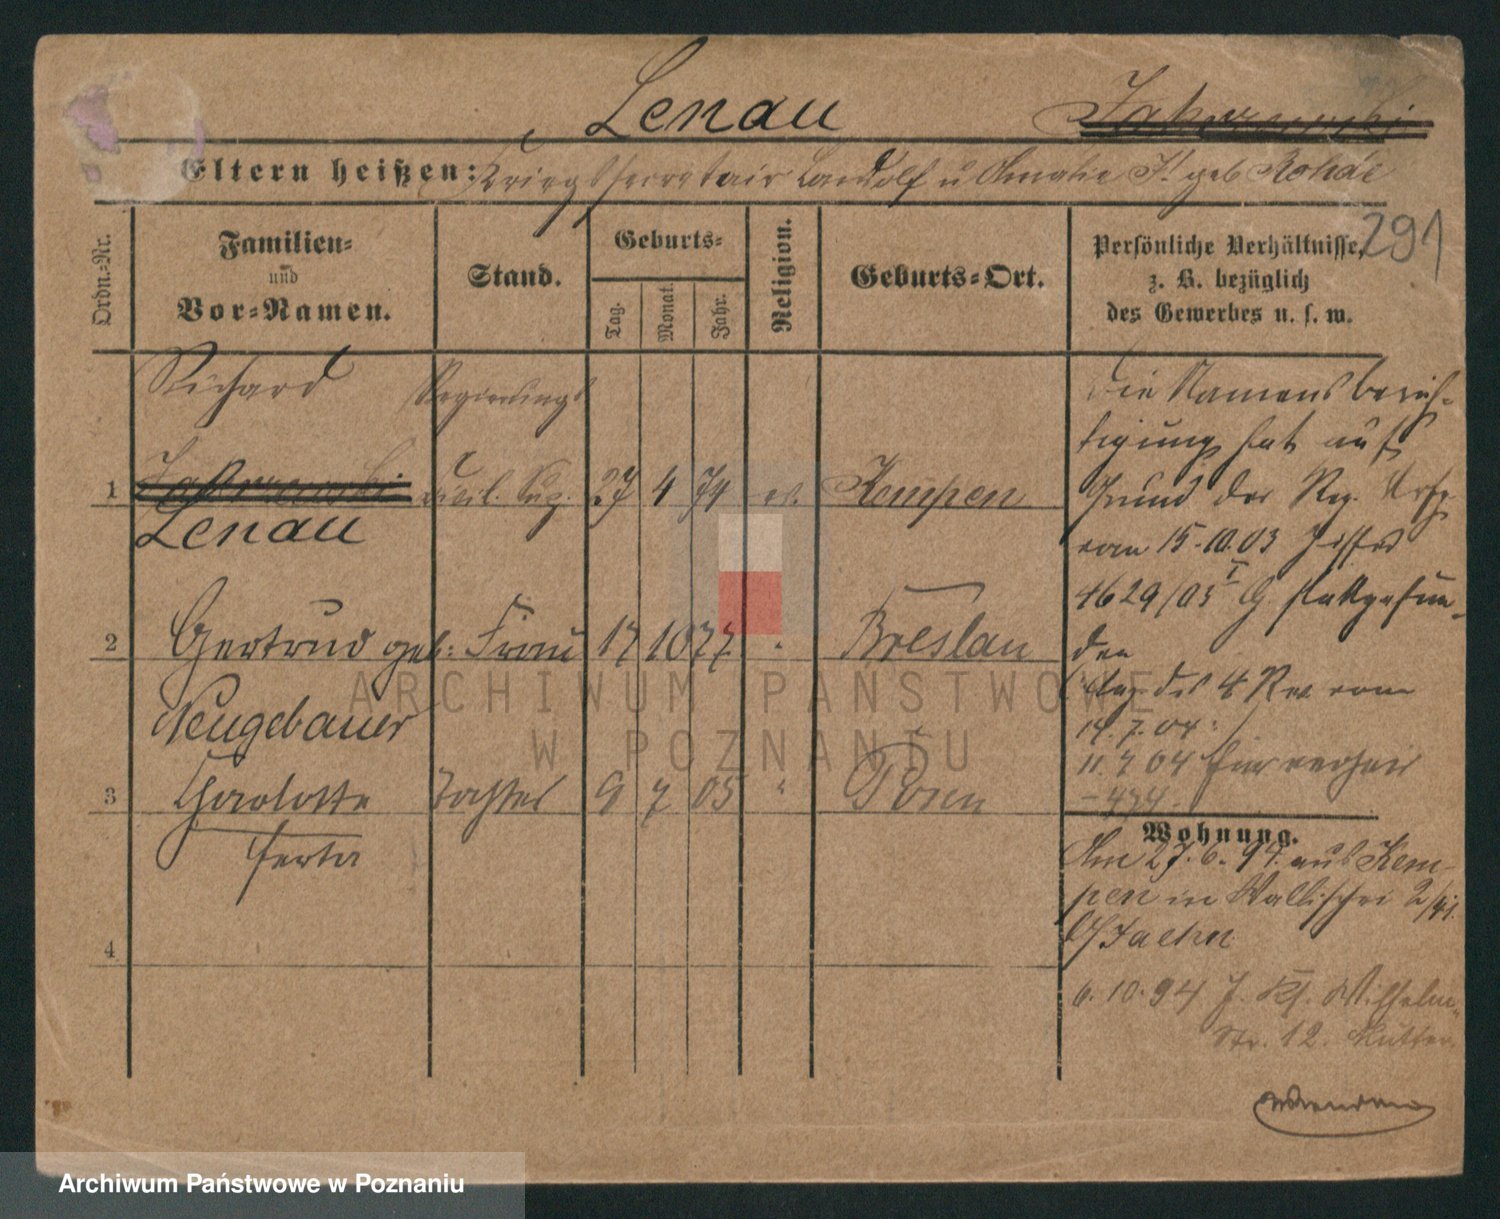 Lenau
Eltern heißen: Kriegssecretair Landolf u Amalie J. geb
291
Ordn.-Nr.
Familien-
und
Vor-Namen.
Stand.
Geburts-
Tag.
Monat.
Jahr.
Religion.
Geburts-Ort.
Persönliche Verhältnisse,
z. B. bezüglich
des Gewerbes u. s. w.
Richard Regierungs
1 Civil. Sup. 27 4 74 ev. Kempen
Lenau
2 Gertrud geb: Frau 17 10 77 " Breslau
Neugebauer
3 Charlotte Tochter 9 7 05 " Posen
Herta
4
Die Namensberich-
tigung hat auf
Grund der Reg. Verfg.
vom 15.10.03
4629/03 I G stattgefun-
den
4 Rev vom
14.7.04.
11.7.04
- 474.
Wohnung.
Am 27.6.94 aus Kem-
pen in Wallischei 2/
6.10.94 Wilhelm-
Str. 12. Mutter.
ARCHIWUM PAŃSTWOWE
W POZNANIU
Archiwum Państwowe w Poznaniu